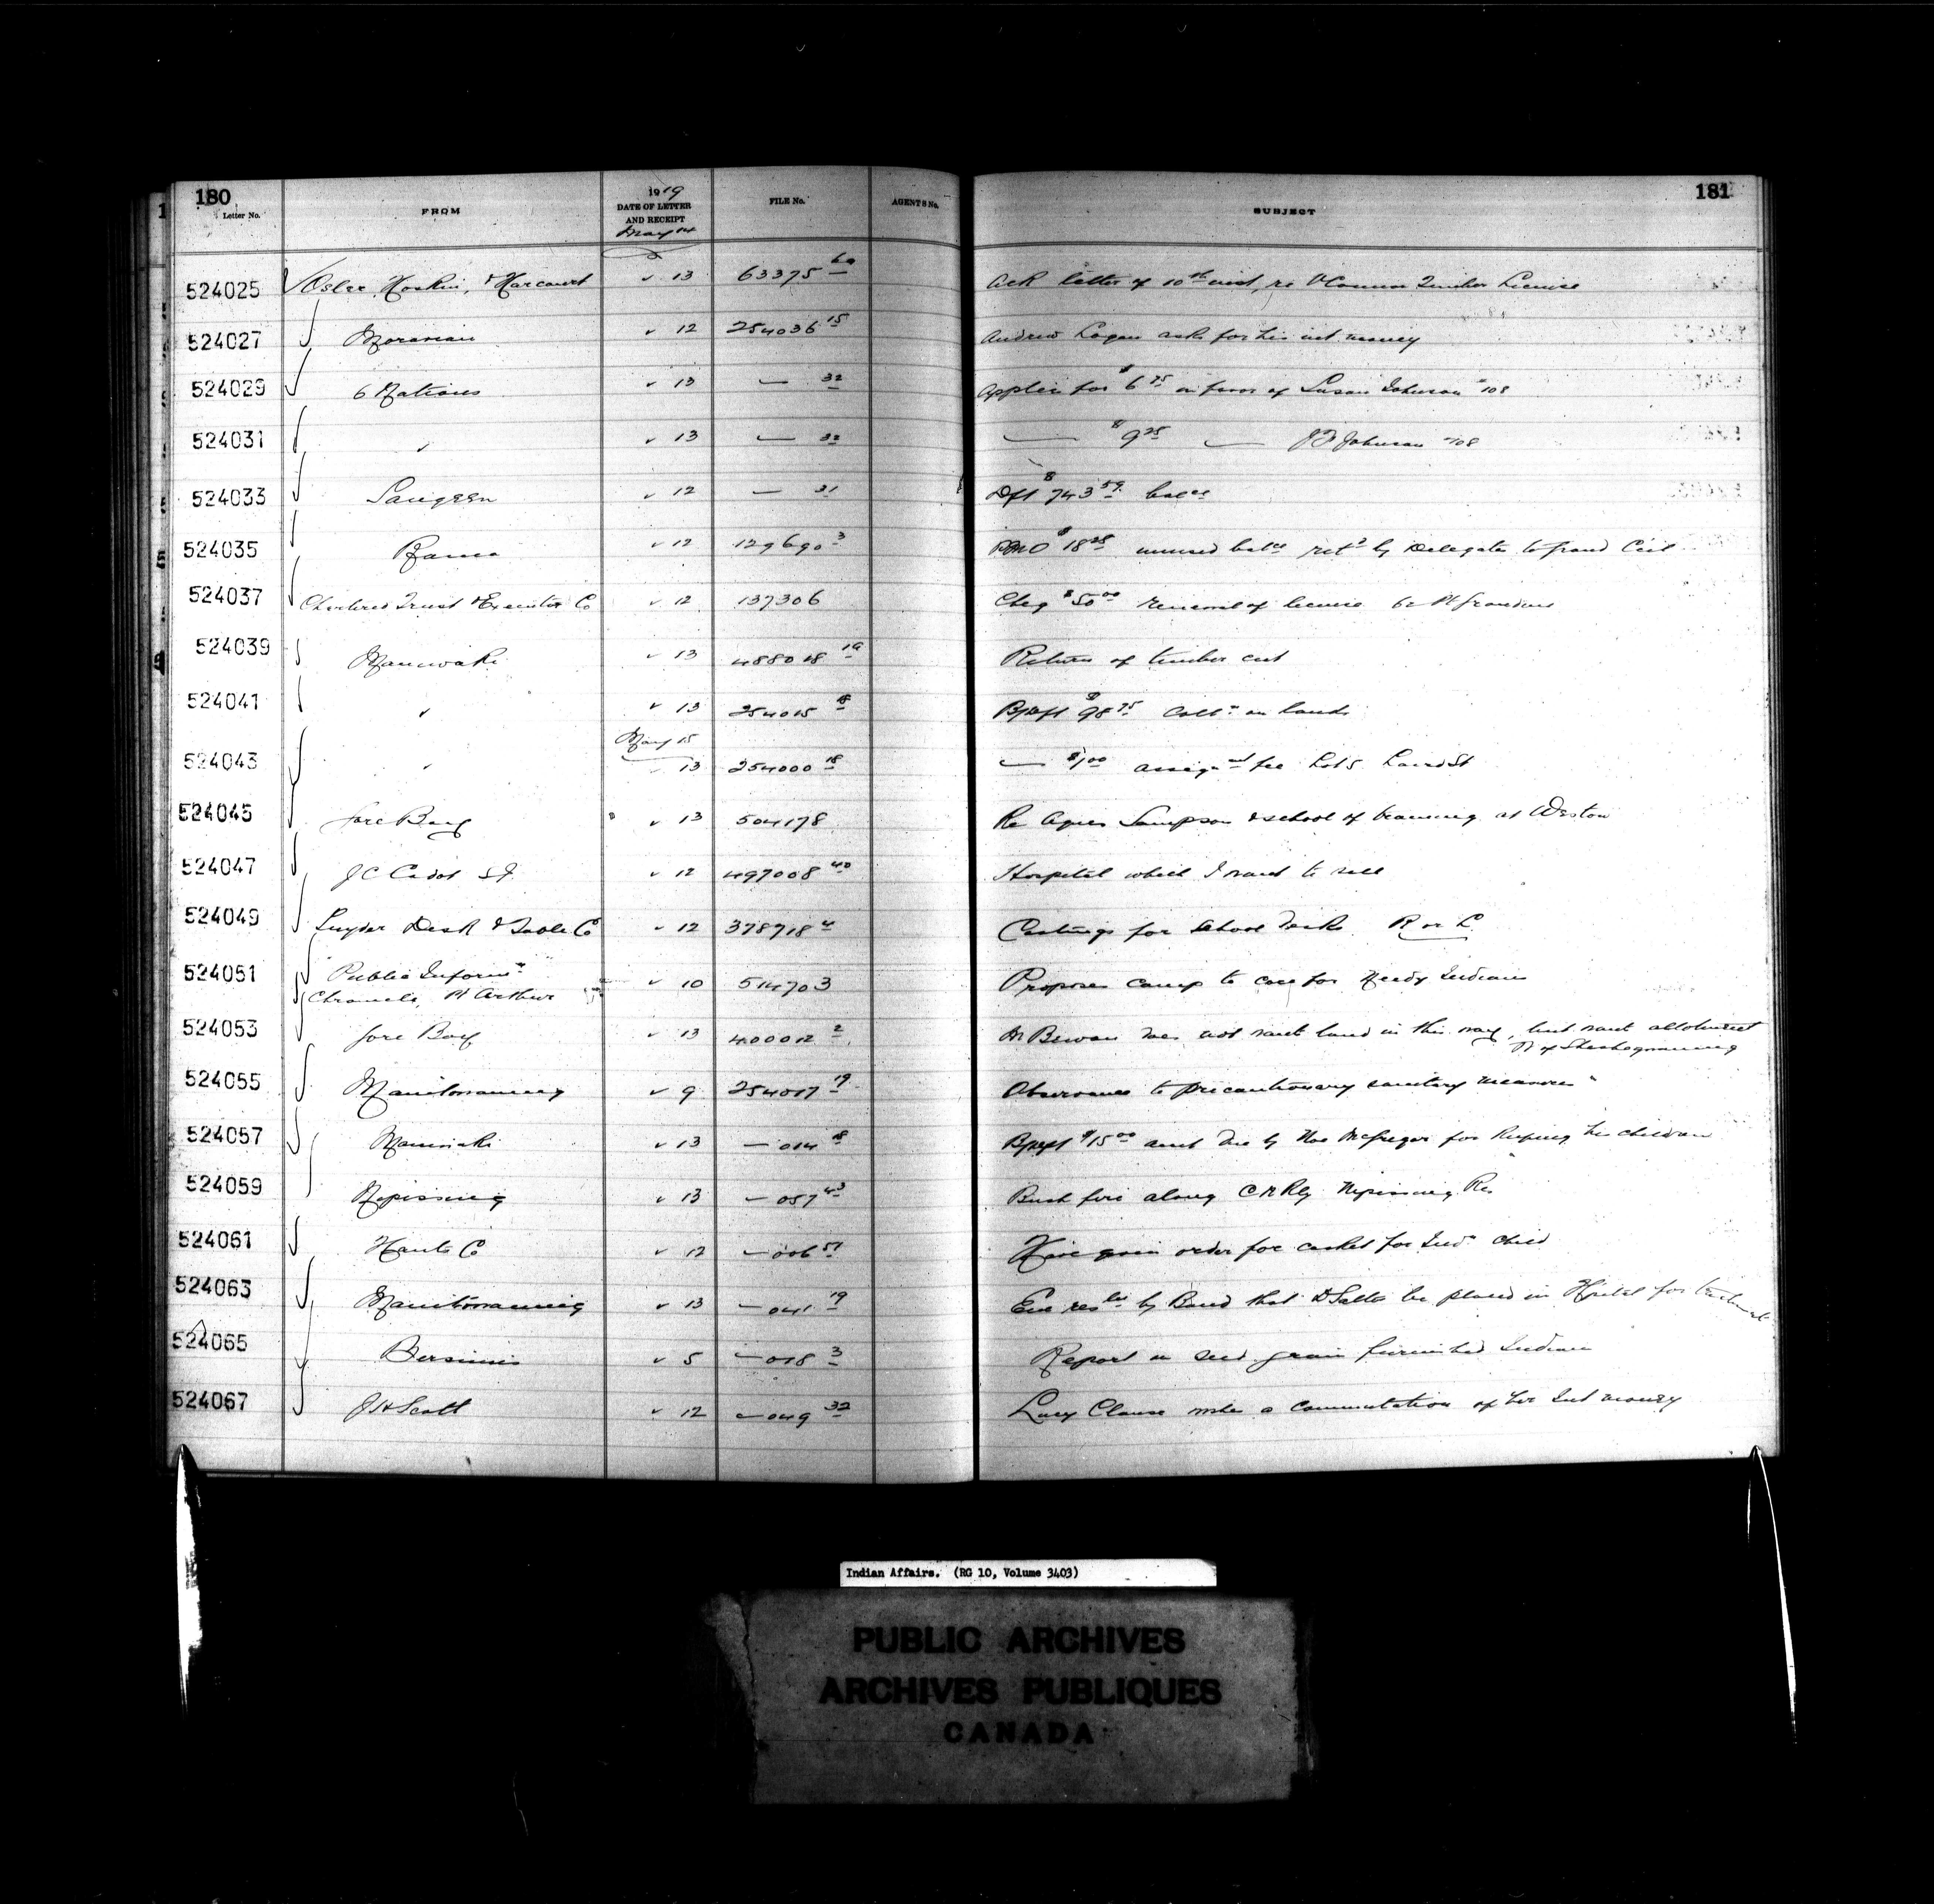 180
181
Letter No. FROM 1919 DATE OF LETTER AND RECEIPT FILE No. AGENT'S No. SUBJECT
May 14
524025 Osler, Hoskin, & Harcourt 13 63375 60 Ack letter of 10th inst, re O'Connor Timber License
524027 Moravian 12 254036 15 Andrew Logan asks for his int money
524029 6 Nations 13 — 32 Applies for $6 75 in favor of Susan Johnson #108
524031 " 13 — 32 — $9 25 — J Johnson #108
524033 Saugeen 12 — 31 Dft $743 59 balce
524035 Rama 12 129690 3 PMO $18 25 unused balce retd by Delegates to Grand Ccil
524037 Chartered Trust & Executor Co 12 137306 Cheq $50 00 renewal of license
524039 Maniwaki 13 488018 19 Return of timber cut
524041 " 13 254015 18 $98 75 Colln on lands
May 15
524043 " 13 254000 18 — $1 00 assignmt fee Lot 5
524045 Gore Bay 13 504178 Re Agnes Sampson & school of training at Weston
524047 J C Cadot SJ 12 497008 40 Hospital which I want to sell
524049 Snyder Desk & Table Co 12 378718 4 Castings for School Desks R or L
524051 "Public Inform" 10 514703 Proposes camp to care for Needy Indians
Chronicle, Pt Arthur
524053 Gore Bay 13 400012 2 does not want land in this way, but want allotment
of Sheshegwaning
524055 Manitowaning 9 254017 19 Observance to precautionary sanitary measures
524057 Maniwaki 13 — 014 18 $15 00 amt due by McGregor for keeping his children
524059 Nipissing 13 — 057 43 Bush fire along C N Rly Nipissing Res
524061 Hants Co 12 — 006 51 Have given order for casket for Indn child
524063 Manitowaning 13 — 041 19 Enc resln by Band that D be placed in Hpital for treatment
524065 Bersimis 5 — 018 3 Report on seed grain furnished Indians
524067 J H Scott 12 — 049 32 Lucy Clause wishes a commutation of her Int money
Indian Affairs. (RG 10, Volume 3403)
PUBLIC ARCHIVES
ARCHIVES PUBLIQUES
CANADA